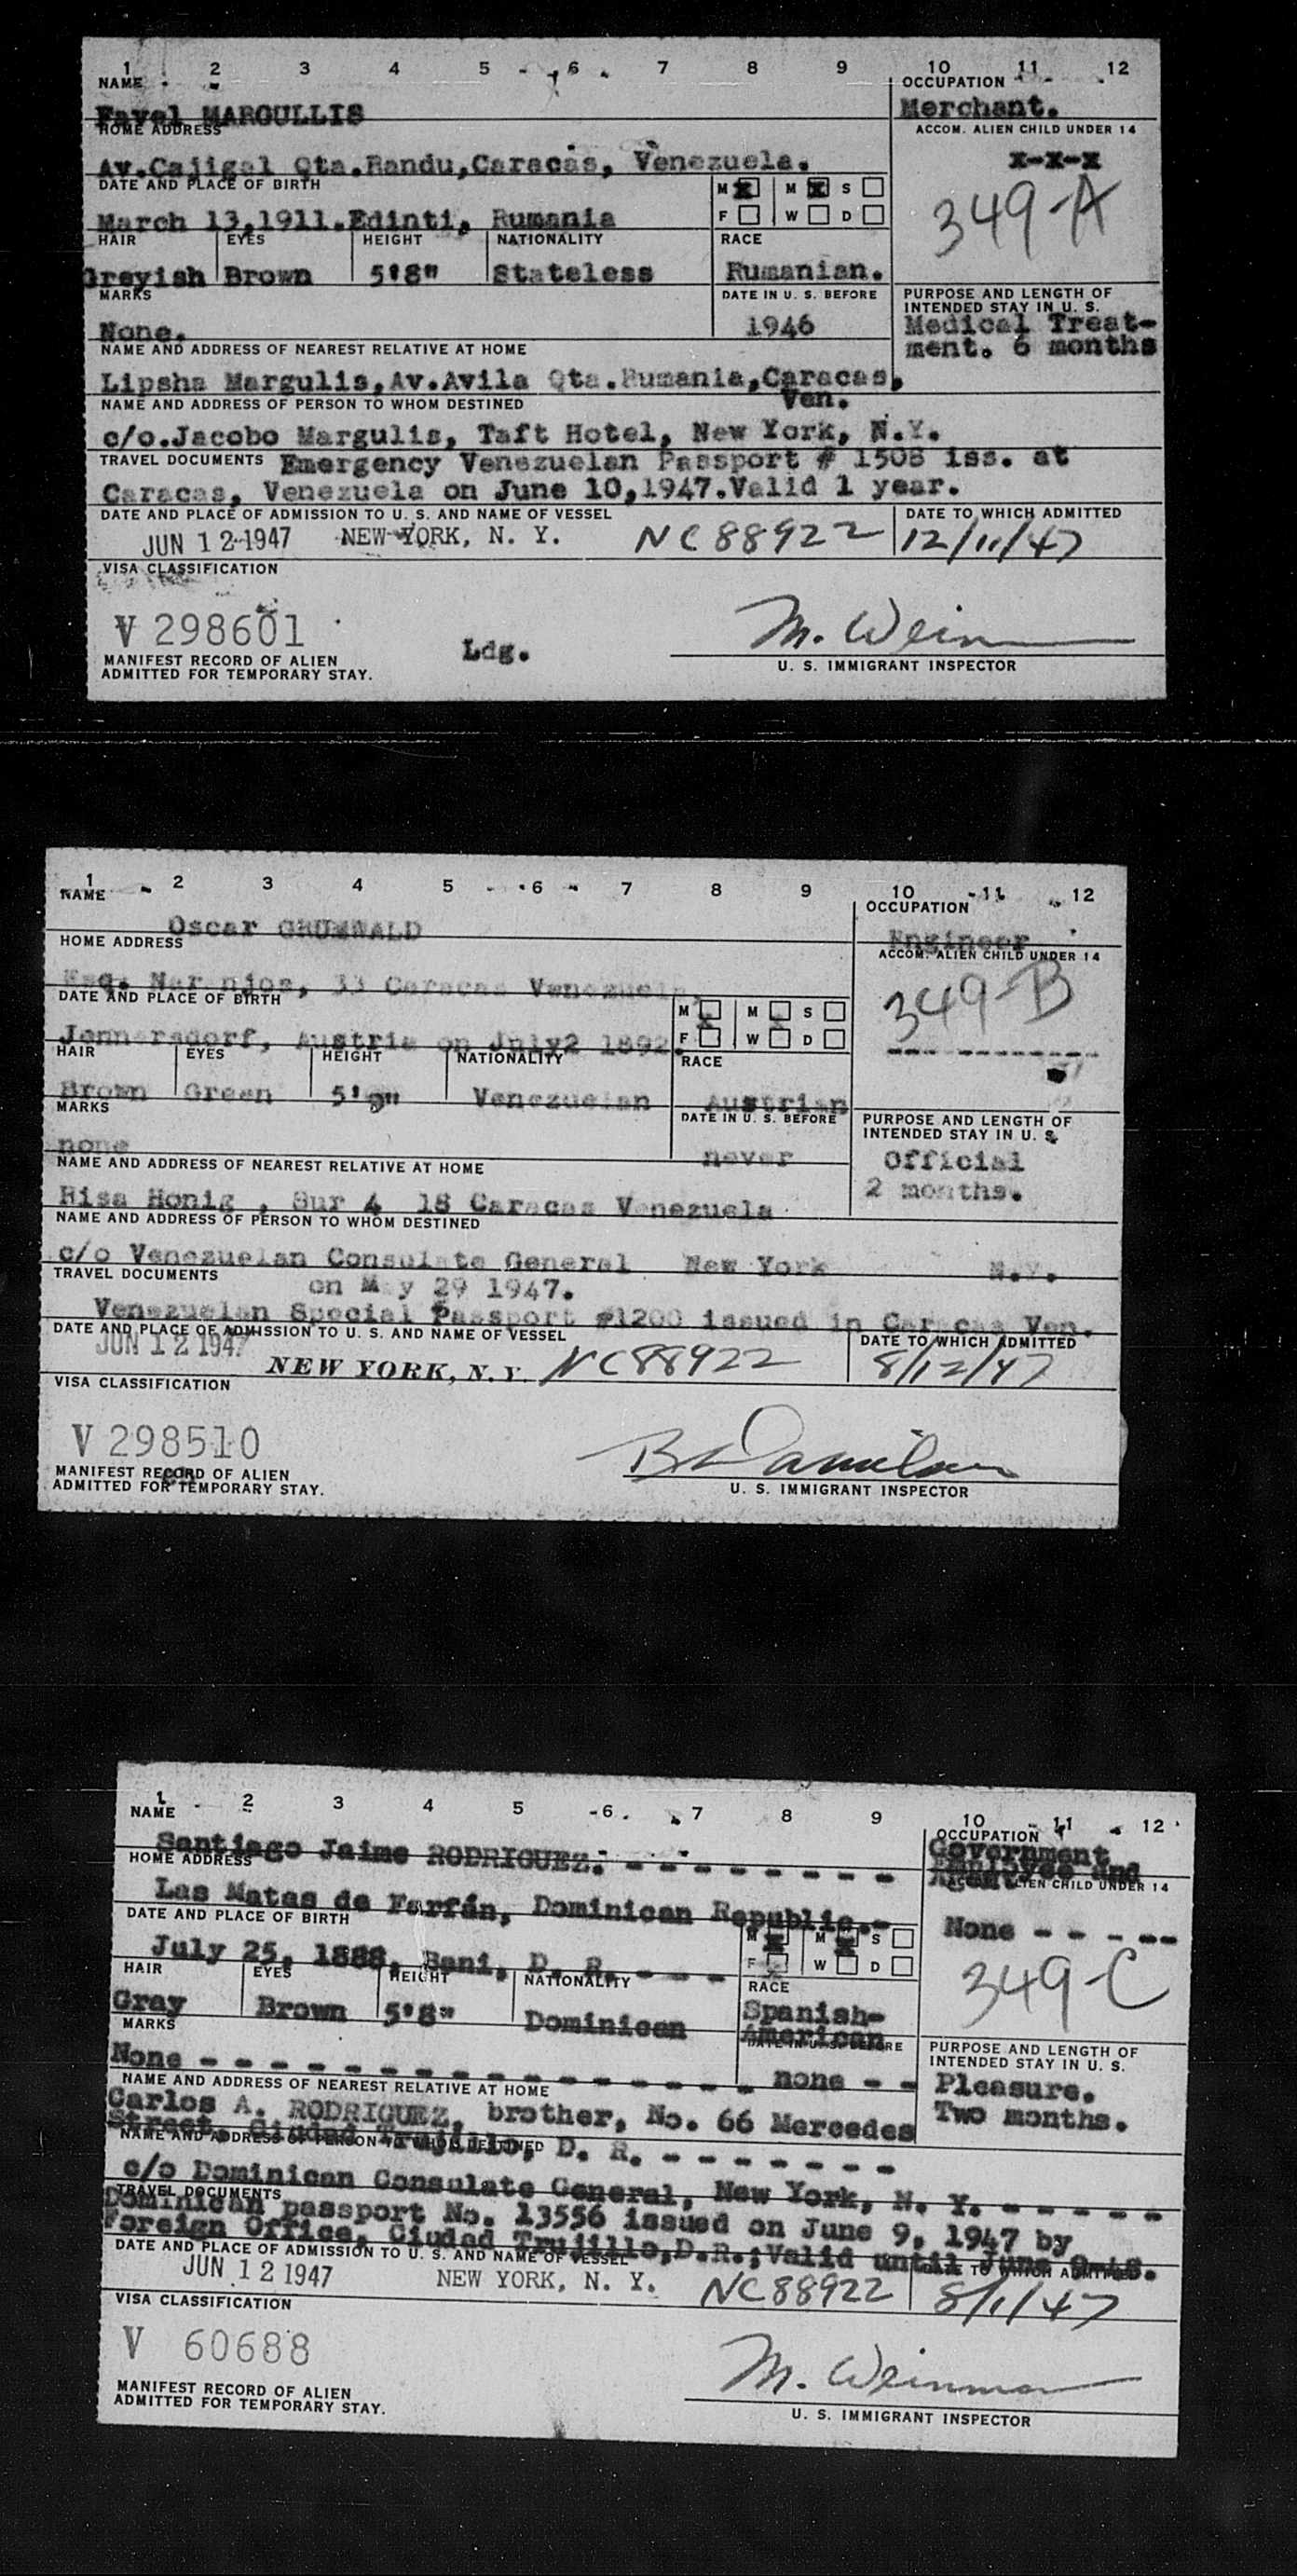 1 2 3 4 5 6 7 8 9 10 11 12
NAME OCCUPATION
Favel MARGULLIS Merchant.
HOME ADDRESS ACCOM. ALIEN CHILD UNDER 14
Av.Cajigal Qta.Bandu,Caracas, Venezuela. X-X-X
DATE AND PLACE OF BIRTH M X M X S
March 13,1911.Edinti, Rumania F W D 349-A
HAIR EYES HEIGHT NATIONALITY RACE
Greyish Brown 5'8" Stateless Rumanian.
MARKS DATE IN U. S. BEFORE PURPOSE AND LENGTH OF
INTENDED STAY IN U. S.
None. 1946 Medical Treat-
NAME AND ADDRESS OF NEAREST RELATIVE AT HOME ment. 6 months
Lipsha Margulis,Av.Avila Qta.Rumania,Caracas,
NAME AND ADDRESS OF PERSON TO WHOM DESTINED Ven.
c/o.Jacobo Margulis, Taft Hotel, New York, N.Y.
TRAVEL DOCUMENTS Emergency Venezuelan Passport # 1508 iss. at
Caracas, Venezuela on June 10,1947.Valid 1 year.
DATE AND PLACE OF ADMISSION TO U. S. AND NAME OF VESSEL DATE TO WHICH ADMITTED
JUN 12 1947 NEW YORK, N. Y. NC88922 12/11/47
VISA CLASSIFICATION
V 298601 Ldg. M. Weinm
MANIFEST RECORD OF ALIEN U. S. IMMIGRANT INSPECTOR
ADMITTED FOR TEMPORARY STAY.
1 2 3 4 5 6 7 8 9 10 11 12
NAME OCCUPATION
Oscar GRUNWALD Engineer
HOME ADDRESS ACCOM. ALIEN CHILD UNDER 14
Esq. Naranjos, 33 Caracas Venezuela 349-B
DATE AND PLACE OF BIRTH M M S
Jennersdorf, Austria on July2 1892. F W D
HAIR EYES HEIGHT NATIONALITY RACE
Brown Green 5'9" Venezuelan Austrian
MARKS DATE IN U. S. BEFORE PURPOSE AND LENGTH OF
INTENDED STAY IN U. S.
none never Official
NAME AND ADDRESS OF NEAREST RELATIVE AT HOME 2 months.
Risa Honig , Sur 4 18 Caracas Venezuela
NAME AND ADDRESS OF PERSON TO WHOM DESTINED
c/o Venezuelan Consulate General New York N.Y.
TRAVEL DOCUMENTS on May 29 1947.
Venezuelan Special Passport #1200 issued in Caracas Ven.
DATE AND PLACE OF ADMISSION TO U. S. AND NAME OF VESSEL DATE TO WHICH ADMITTED
JUN 12 1947 NEW YORK, N. Y. NC88922 8/12/47
VISA CLASSIFICATION
V 298510
MANIFEST RECORD OF ALIEN U. S. IMMIGRANT INSPECTOR
ADMITTED FOR TEMPORARY STAY.
1 2 3 4 5 6 7 8 9 10 11 12
NAME OCCUPATION
Santiago Jaime RODRIGUEZ. - - - - - - - - Government
Employee and
HOME ADDRESS Agent ACCOM. ALIEN CHILD UNDER 14
Las Matas de Farfán, Dominican Republic.- None - - - - -
DATE AND PLACE OF BIRTH M X M X S
July 25, 1888, Bani, D. R. - - - F W D 349-C
HAIR EYES HEIGHT NATIONALITY RACE
Gray Brown 5'8" Dominican Spanish-
American
MARKS DATE IN U. S. BEFORE PURPOSE AND LENGTH OF
INTENDED STAY IN U. S.
None - - - - - - - - - - - - - none - - Pleasure.
NAME AND ADDRESS OF NEAREST RELATIVE AT HOME Two months.
Carlos A. RODRIGUEZ, brother, No. 66 Mercedes
Street, Ciudad Trujillo, D. R. - - - - - - -
NAME AND ADDRESS OF PERSON TO WHOM DESTINED
c/o Dominican Consulate General, New York, N. Y. - - - - -
TRAVEL DOCUMENTS
Dominican passport No. 13556 issued on June 9, 1947 by
Foreign Office, Ciudad Trujillo,D.R.;Valid until June 9-48.
DATE AND PLACE OF ADMISSION TO U. S. AND NAME OF VESSEL DATE TO WHICH ADMITTED
JUN 12 1947 NEW YORK, N. Y. NC88922 8/11/47
VISA CLASSIFICATION
V 60688 M. Weinman
MANIFEST RECORD OF ALIEN U. S. IMMIGRANT INSPECTOR
ADMITTED FOR TEMPORARY STAY.